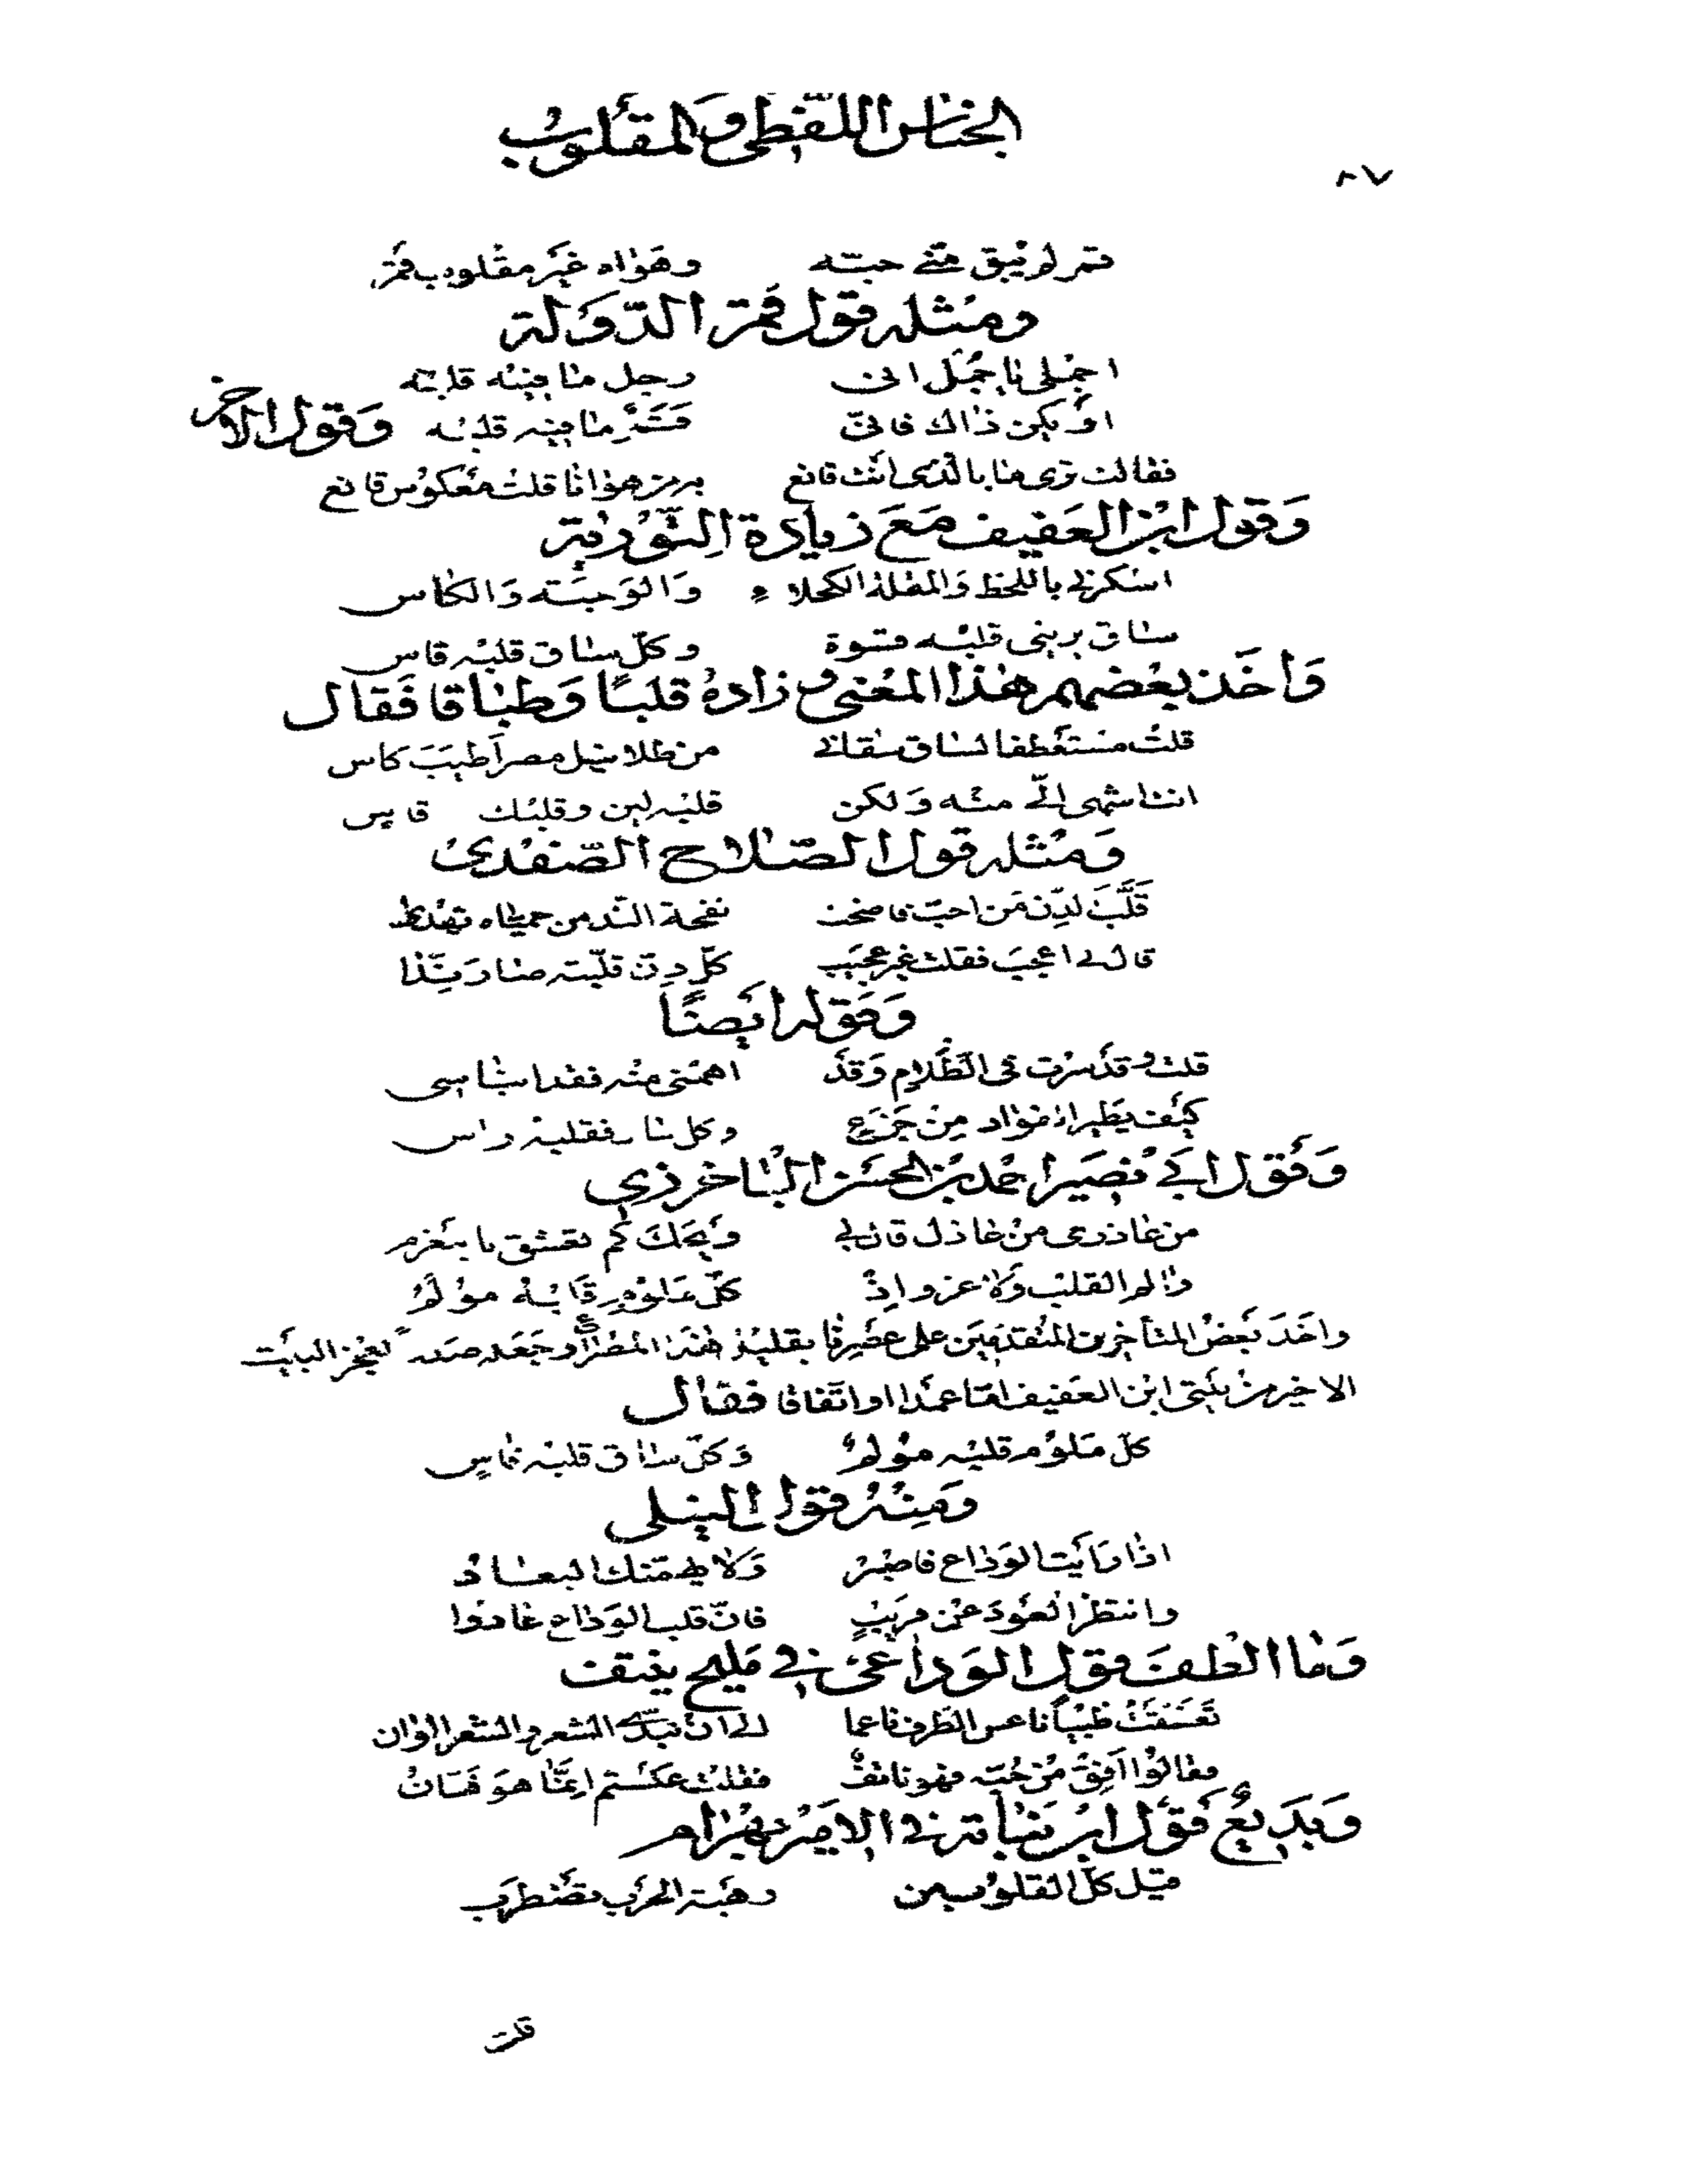 الجناس اللفظي والمقلوب
٨٧
قمر لم يبق مني حبه وهواه غير مقلوب قمر
ومثله قول قمر الدولة
اجملي يا جمل اني رجل ما فيه قلبه
او يكن ذاك فاني قمر ما فيه قلبه وقول الاخر
فقالت ترى ما بالذى انت قانع بربز هوانا قلت معكوس قانع
وقول ابن العفيف مع زيادة التورية
اسكرني باللحظ والمقلة الكحلاء والوجنة والكاس
ساق يريني قلبه قسوة وكل ساق قلبه قاس
واخذ بعضهم هذا المعنى وزاده قلبا وطباقا فقال
قلت مستعطفا لساق سقاني من طلا نيل مصر اطيب كاس
انت اشهى الي منه ولكن قلبه لين وقلبك قاس
ومثله قول الصلاح الصفدي
قلب لدن من احب فاضحت نفحة الند من حمياه تهدى
قال لي اعجب فقلت غير عجيب كل دن قلبته صار ندا
وقوله ايضا
قلت وقد سرت في الظلام وقد اهمني منه فقد ايناسي
كيف يطير الفؤاد من جزع وكل سار فقلبه راس
وقول ابي نصير احمد بن الحسن الباخرزي
من عاذرى من عاذل قال لي ويحك كم تعشق يا مغرم
والم القلب ولا غرو اذ كل ملوم قلبه مولم
واخذ بعض المتأخرين المتقدمين على عصرنا بقليل هذا المصراع وجعله صدرا لعجز البيت
الاخير من بيتي ابن العفيف اما عمدا او اتفاقا فقال
كل ملوم قلبه مولم وكل ساق قلبه قاس
ومنه قول النيلي
اذا رأيت الوداع فاصبر ولا يهمنك البعاد
وانتظر العود عن قريب فان قلب الوداع عادوا
وما الطف قول الوداعي في مليح يغنقن
تعشقت ظبيا ناعس الطرف ناعما الى ان تبدى الشعر والشعر الوان
وقالوا افق من حبه فهو ناتف فقلت عكستم انما هو فتان
وبديع قول ابن نباته في الامير بهرام
قيل كل القلوب من رهبة الحرب تضطرب
قلت